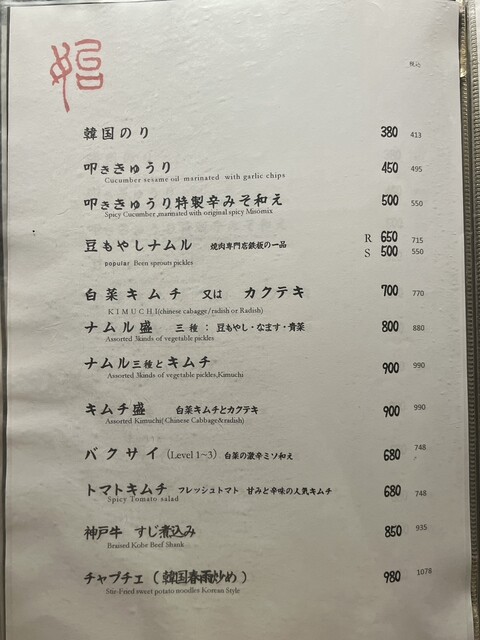 税込
韓国のり 380 413
叩ききゅうり 450 495
Cucumber sesame oil marinated with garlic chips
叩ききゅうり特製辛みそ和え 500 550
Spicy Cucumber ,marinated with original spicy Misomix
豆もやしナムル 焼肉専門店鉄板の一品 R 650 715
S 500 550
popular Been sprouts pickles
白菜キムチ 又は カクテキ 700 770
KIMUCHI(chinese cabagge/radish or Radish)
ナムル盛 三種：豆もやし・なます・青菜 800 880
Assorted 3kinds of vegetable pickles
ナムル三種とキムチ 900 990
Assorted 3kinds of vegetable pickles,Kimuchi
キムチ盛 白菜キムチとカクテキ 900 990
Assorted Kimuchi(Chinese Cabbage&radish)
バクサイ（Level 1~3）白菜の激辛ミソ和え 680 748
トマトキムチ フレッシュトマト 甘みと辛味の人気キムチ 680 748
Spicy Tomato salad
神戸牛 すじ煮込み 850 935
Braised Kobe Beef Shank
チャプチェ（韓国春雨炒め） 980 1078
Stie-Fried sweet potato noodles Korean Style